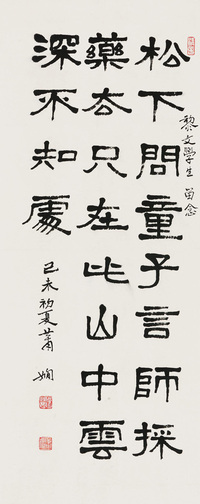 黎文學生 留念
松下問童子言師採
藥去只在此山中雲
深不知處
己未初夏蕭嫻